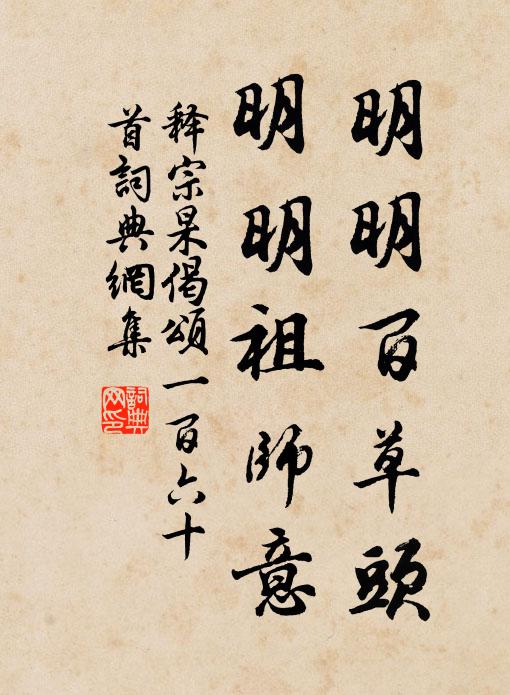 明明百草頭
明明祖師意
释宗杲偈頌一百六十
首詞典網集
詞典
网印